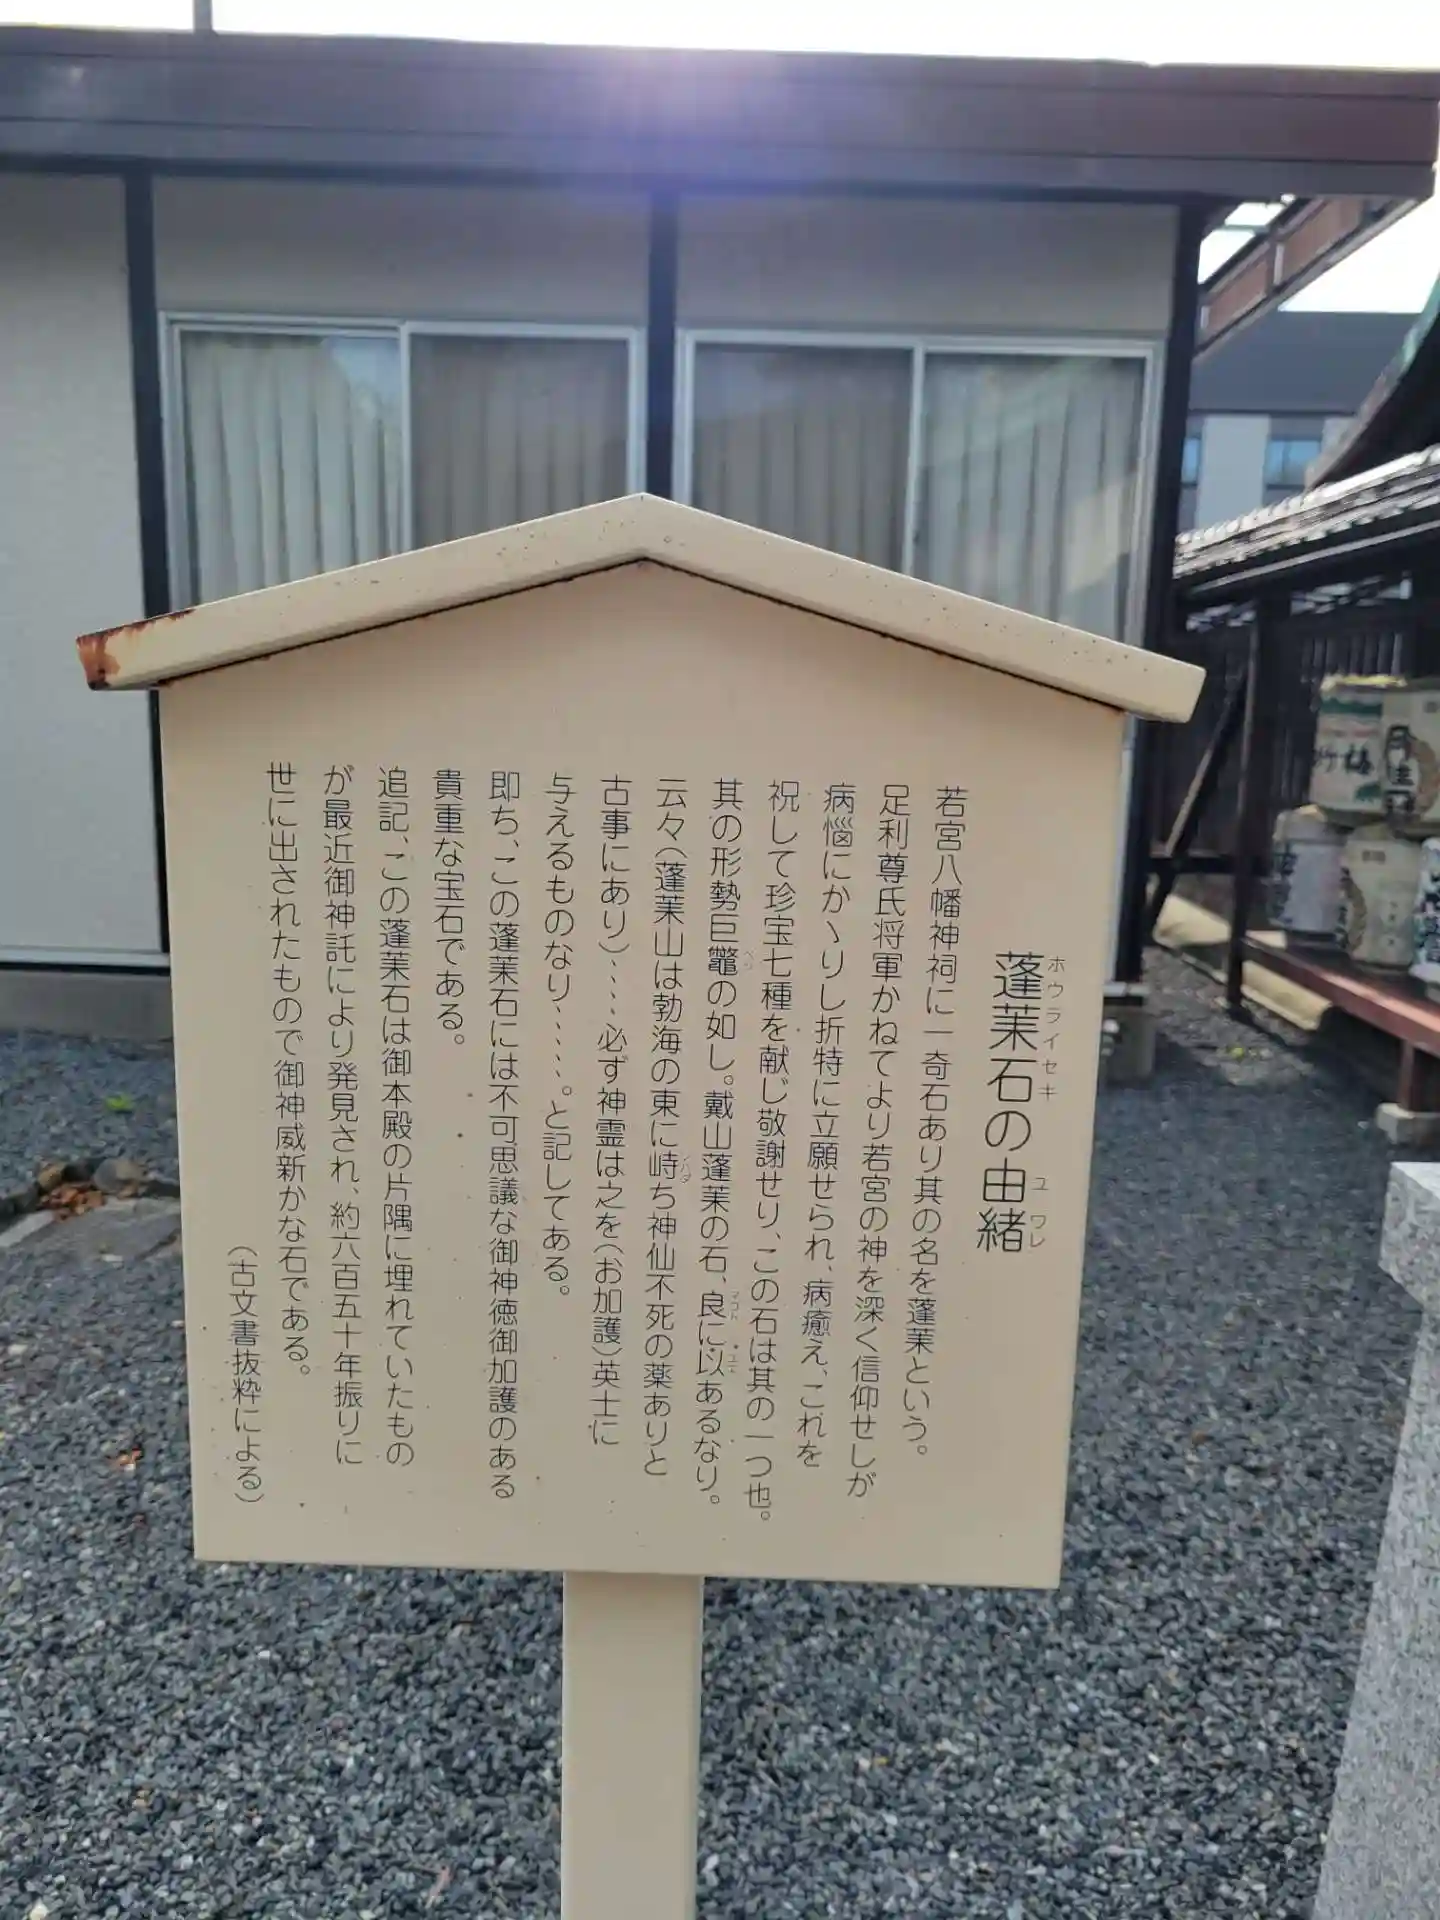 蓬莱石の由緒
ホウライセキ
ユワレ
若宮八幡神祠に一奇石あり其の名を蓬莱という。
足利尊氏将軍かねてより若宮の神を深く信仰せしが
病悩にかゝりし折特に立願せられ、病癒え、これを
祝して珍宝七種を献じ敬謝せり、この石は其の一つ也。
其の形勢巨鼊の如し。戴山蓬莱の石、良に以あるなり。
マコト
ユエ
云々(蓬莱山は勃海の東に峙ち神仙不死の薬ありと
古事にあり)、、、、必ず神霊は之を(お加護)英士に
与えるものなり、、、、、。と記してある。
即ち、この蓬莱石には不可思議な御神徳御加護のある
貴重な宝石である。
追記、この蓬莱石は御本殿の片隅に埋れていたもの
が最近御神託により発見され、約六百五十年振りに
世に出されたもので御神威新かな石である。
(古文書抜粋による)